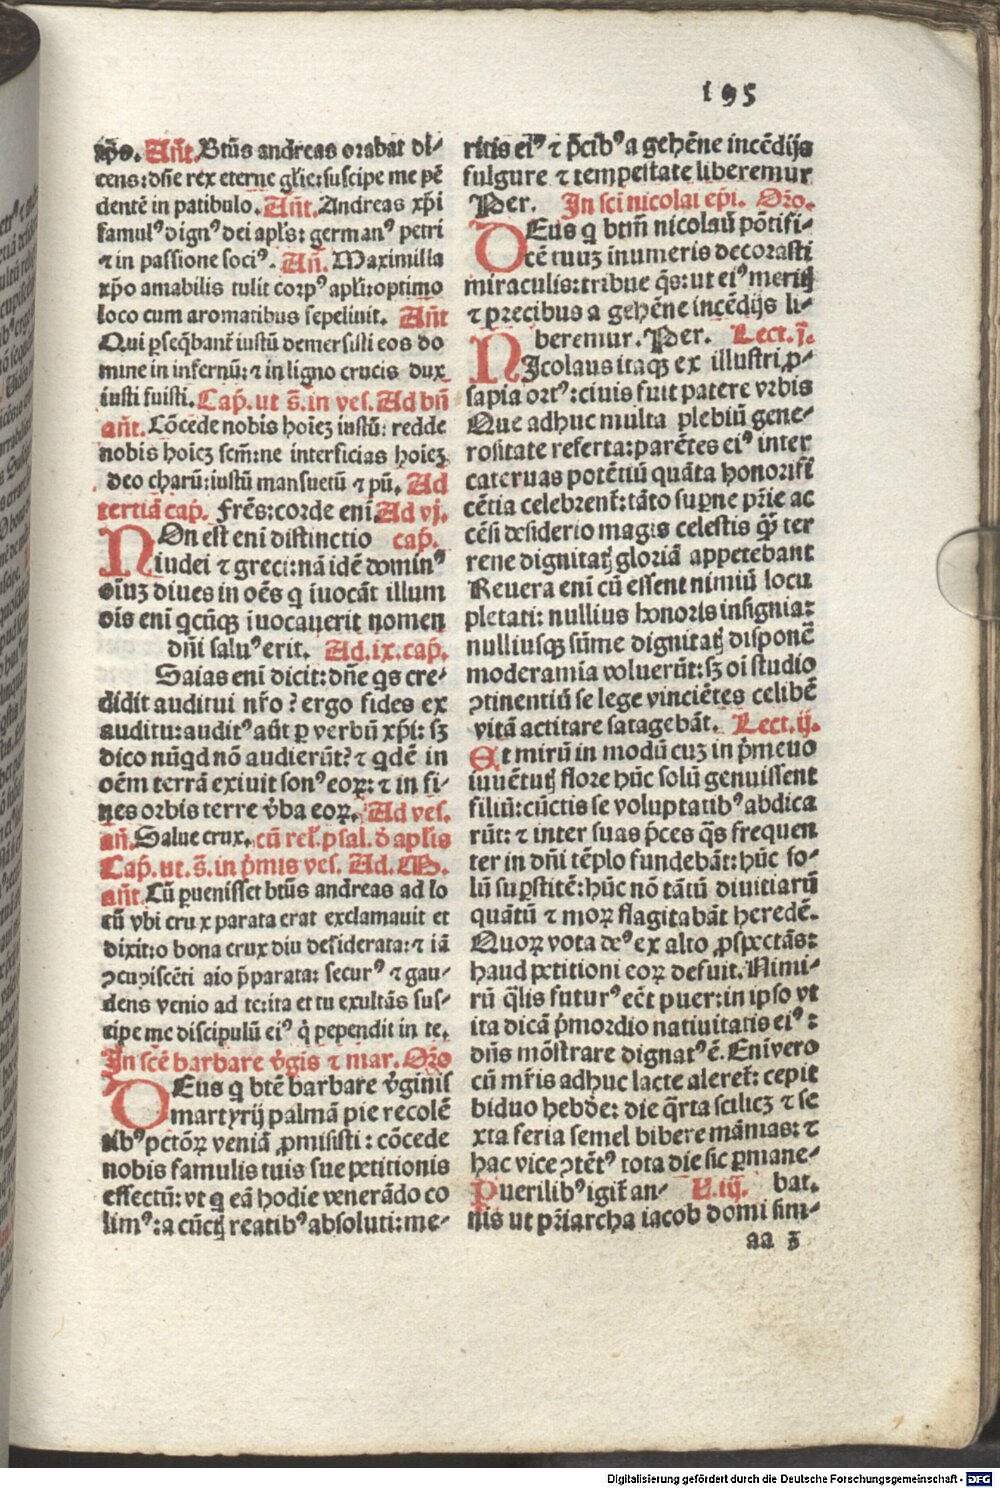 195
xp̄o. An̄t. Btūs andreas orabat di-
cens: dn̄e rex eterne gl̄ie: suscipe me pē
dentē in patibulo. An̄t. Andreas xp̄i
famulꝰ dignꝰ dei apl̄s: germanꝰ petri
⁊ in passione sociꝰ. An̄. Maximilla
xp̄o amabilis tulit corpꝰ apl̄i: optimo
loco cum aromatibus sepeliuit. An̄t
Qui ꝑseq̄banꝉ iustū demersisti eos do
mine in infernū: ⁊ in ligno crucis dux
iusti fuisti. Cap̄. ut s̄. in ves. Ad bn̄
an̄t. Cōcede nobis hoīeꝫ iustū: redde
nobis hoīeꝫ sc̄m: ne interficias hoīeꝫ
deo charū: iustū mansuetū ⁊ pū. Ad
tertiā cap̄. Fr̄es: corde eni Ad vj.
NOn est eni distinctio cap̄.
iudei ⁊ greci: nā idē dominꝰ
oīuꝫ diues in oēs q̄ iuocāt illum
oīs eni q̄cūqꝫ iuocauerit nomen
dn̄i saluꝰ erit. Ad. ix. cap̄.
Saias eni dicit: dn̄e q̄s cre-
didit auditui nr̄o? ergo fides ex
auditu: auditꝰ aūt ꝑ verbū xp̄i: sꝫ
dico nūqd nō audierūt? ⁊ qdē in
oēm terrā exiuit sonꝰ eoꝝ: ⁊ in fi-
nes orbis terre v̄ba eoꝝ. Ad ves.
an̄. Salue crux. cū rel̄. psal. ō apl̄is
Cap̄. ut. s̄. in p̄mis ves. Ad. M.
an̄t. Cū ꝑuenisset btūs andreas ad lo
cū vbi crux parata erat exclamauit et
dixit: o bona crux diu desiderata: ⁊ iā
ꝯcupiscēti aīo p̄parata: securꝰ ⁊ gau-
dens venio ad te: ita et tu exultās sus-
cipe me discipulū eiꝰ q̇ pependit in te.
In sc̄e barbare v̄gis ⁊ mar. Or̄o
DEus q̄ btē barbare v̄ginis
martyrij palmā pie recolē
tibꝰ pctōꝝ veniā ꝓmisisti: cōcede
nobis famulis tuis sue petitionis
effectū: vt q̄ eā hodie venerādo co
limꝰ: a cūctꝭ reatibꝰ absoluti: me-
ritis eiꝰ ⁊ p̄cibꝰ a gehēne incēdijs
fulgure ⁊ tempestate liberemur
Per. In sc̄i nicolai ep̄i. Or̄o.
DEus q̄ btm̄ nicolaū pōtifi-
cē tuuꝫ inumeris decorasti
miraculis: tribue q̄s: ut eiꝰ meritꝭ
⁊ precibus a gehēne incēdijs li-
beremur. Per. Lect. j.
NIcolaus itaqꝫ ex illustri ꝓ-
sapia ortꝰ: ciuis fuit patere vrbis
Que adhuc multa plebiū gene-
rositate referta: parētes eiꝰ inter
cateruas potētiū quāta honorifi
cētia celebrenꝉ: tāto suꝑne pr̄ie ac
cēsi desiderio magis celestis qꝫ̄ ter
rene dignitatꝭ gloriā appetebant
Reuera eni cū essent nimiū locu
pletati: nullius honoris insignia:
nulliusqꝫ sūme dignitatꝭ disponē
moderamia voluerūt: sꝫ oī studio
ꝯtinentiū se lege vinciētes celibē
vitā actitare satagebāt. Lect. ij.
Et mirū in modū cuꝫ in p̄meuo
iuuētutꝭ flore hūc solū genuissent
filiū: cūctis se voluptatibꝰ abdica
rūt: ⁊ inter suas p̄ces q̄s frequen
ter in dn̄i tēplo fundebāt: hūc so-
lū suꝑstitē: hūc nō tātū diuitiarū
quātū ⁊ moꝝ flagitabāt heredē.
Quoꝝ vota deꝰ ex alto ꝓspectās:
haud petitioni eoꝝ defuit. Nimi-
rū q̄lis futurꝰ eēt puer: in ipso vt
ita dicā p̄mordio natiuitatis eiꝰ:
dn̄s mōstrare dignatꝰ ē. Enīvero
cū mr̄is adhuc lacte alereꝉ: cepit
biduo hebde: die q̄rta scilicꝫ ⁊ se
xta feria semel bibere māmas: ⁊
hac vice ꝯtētꝰ tota die sic ꝑmane-
Puerilibꝰ igiꝉ an- L. iij. bat.
nis ut pr̄iarcha iacob domi sim-
aa 3
Digitalisierung gefördert durch die Deutsche Forschungsgemeinschaft - DFG